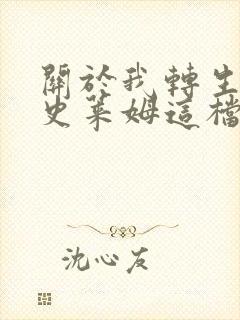 關於我轉生
史萊姆這檔
沈心友